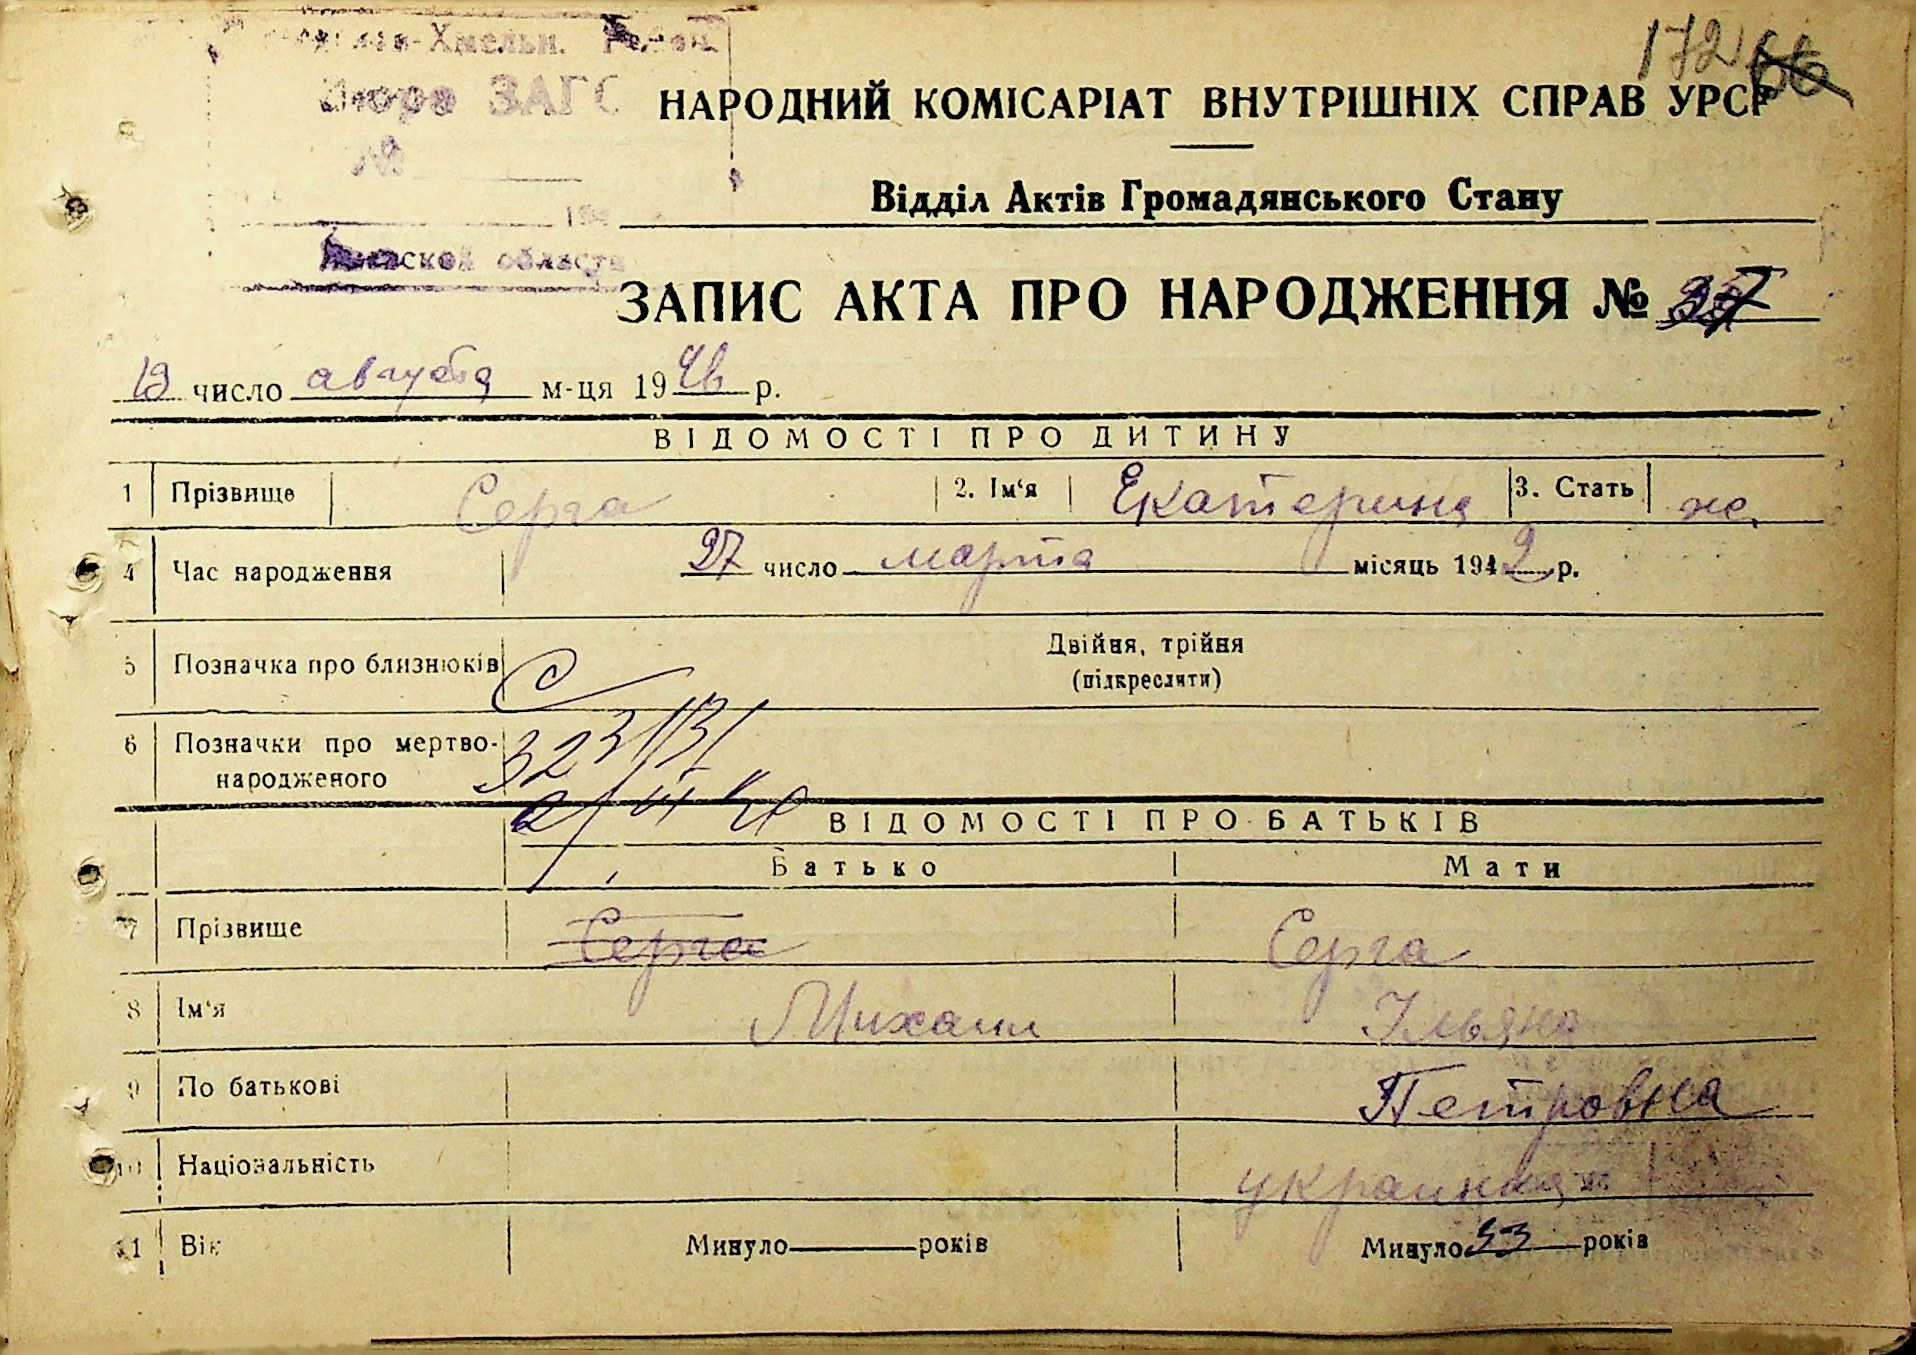 172 66
-Хмельн.
Бюро ЗАГС
№
НАРОДНИЙ КОМІСАРІАТ ВНУТРІШНІХ СПРАВ УРСР
Відділ Актів Громадянського Стану
области
ЗАПИС АКТА ПРО НАРОДЖЕННЯ № 37
19 число августа м-ця 1946 р.
ВІДОМОСТІ ПРО ДИТИНУ
1 Прізвище Серга 2. Ім‘я Екатерина 3. Стать ж.
4 Час народження 27 число марта місяць 1942 р.
5 Позначка про близнюків Двійня, трійня
(підкреслити)
6 Позначки про мертво-
народженого
ВІДОМОСТІ ПРО БАТЬКІВ
Батько Мати
7 Прізвище Серга Серга
8 Ім‘я Михаил Ульяна
9 По батькові Петровна
10 Національність украинка
11 Вік Минуло років Минуло років